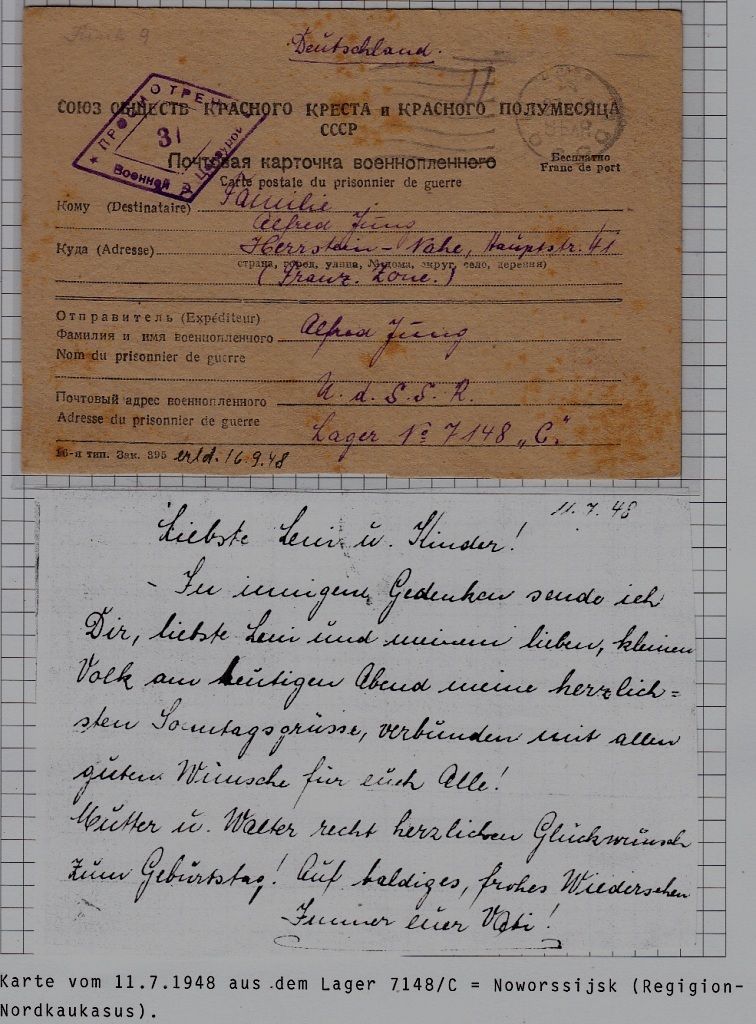 Deutschland.
СОЮЗ ОБЩЕСТВ КРАСНОГО КРЕСТА и КРАСНОГО ПОЛУМЕСЯЦА
СССР
ПРОСМОТРЕНО
31
Военной Цензурой
Почтовая карточка военнопленного
Carte postale du prisonnier de guerre
Бесплатно
Franc de port
Кому (Destinataire) Familie
Alfred Jung
Куда (Adresse) Herrstein-Nahe, Hauptstr. 41
страна, город, улица, № дома, округ, село, деревня)
(Franz. Zone.)
Отправитель (Expéditeur)
Фамилия и имя военнопленного Alfred Jung
Nom du prisonnier de guerre
Почтовый адрес военнопленного U. d. S. S. R.
Adresse du prisonnier de guerre Lager № 7148 „C."
16-я тип. Зак. 395 erld. 16.9.48
11.7.48
Liebste Leni u. Kinder!
- In innigem Gedenken sende ich
Dir, liebste Leni und meinem lieben, kleinen
Volk am heutigen Abend meine herzlich=
sten Sonntagsgrüsse, verbunden mit allen
guten Wünsche für euch Alle!
Mutter u. Walter recht herzlichen Glückwunsch
zum Geburtstag! Auf baldiges, frohes Wiedersehen
Immer euer Vati!
Karte vom 11.7.1948 aus dem Lager 7148/C = Noworssijsk (Regigion-
Nordkaukasus).